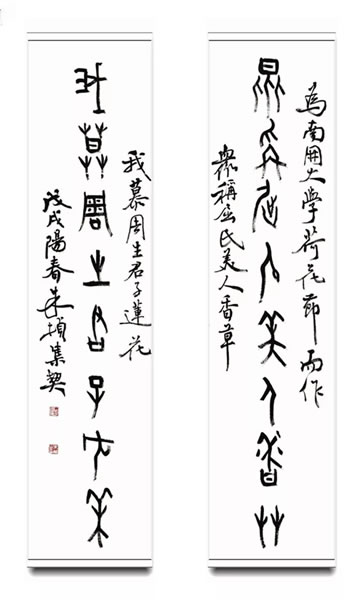 為南開大學荷花節而作
眾稱屈氏美人香草
眾稱屈氏美人香草
我慕周生君子蓮花
我慕周生君子蓮花
戊戌陽春朱集契